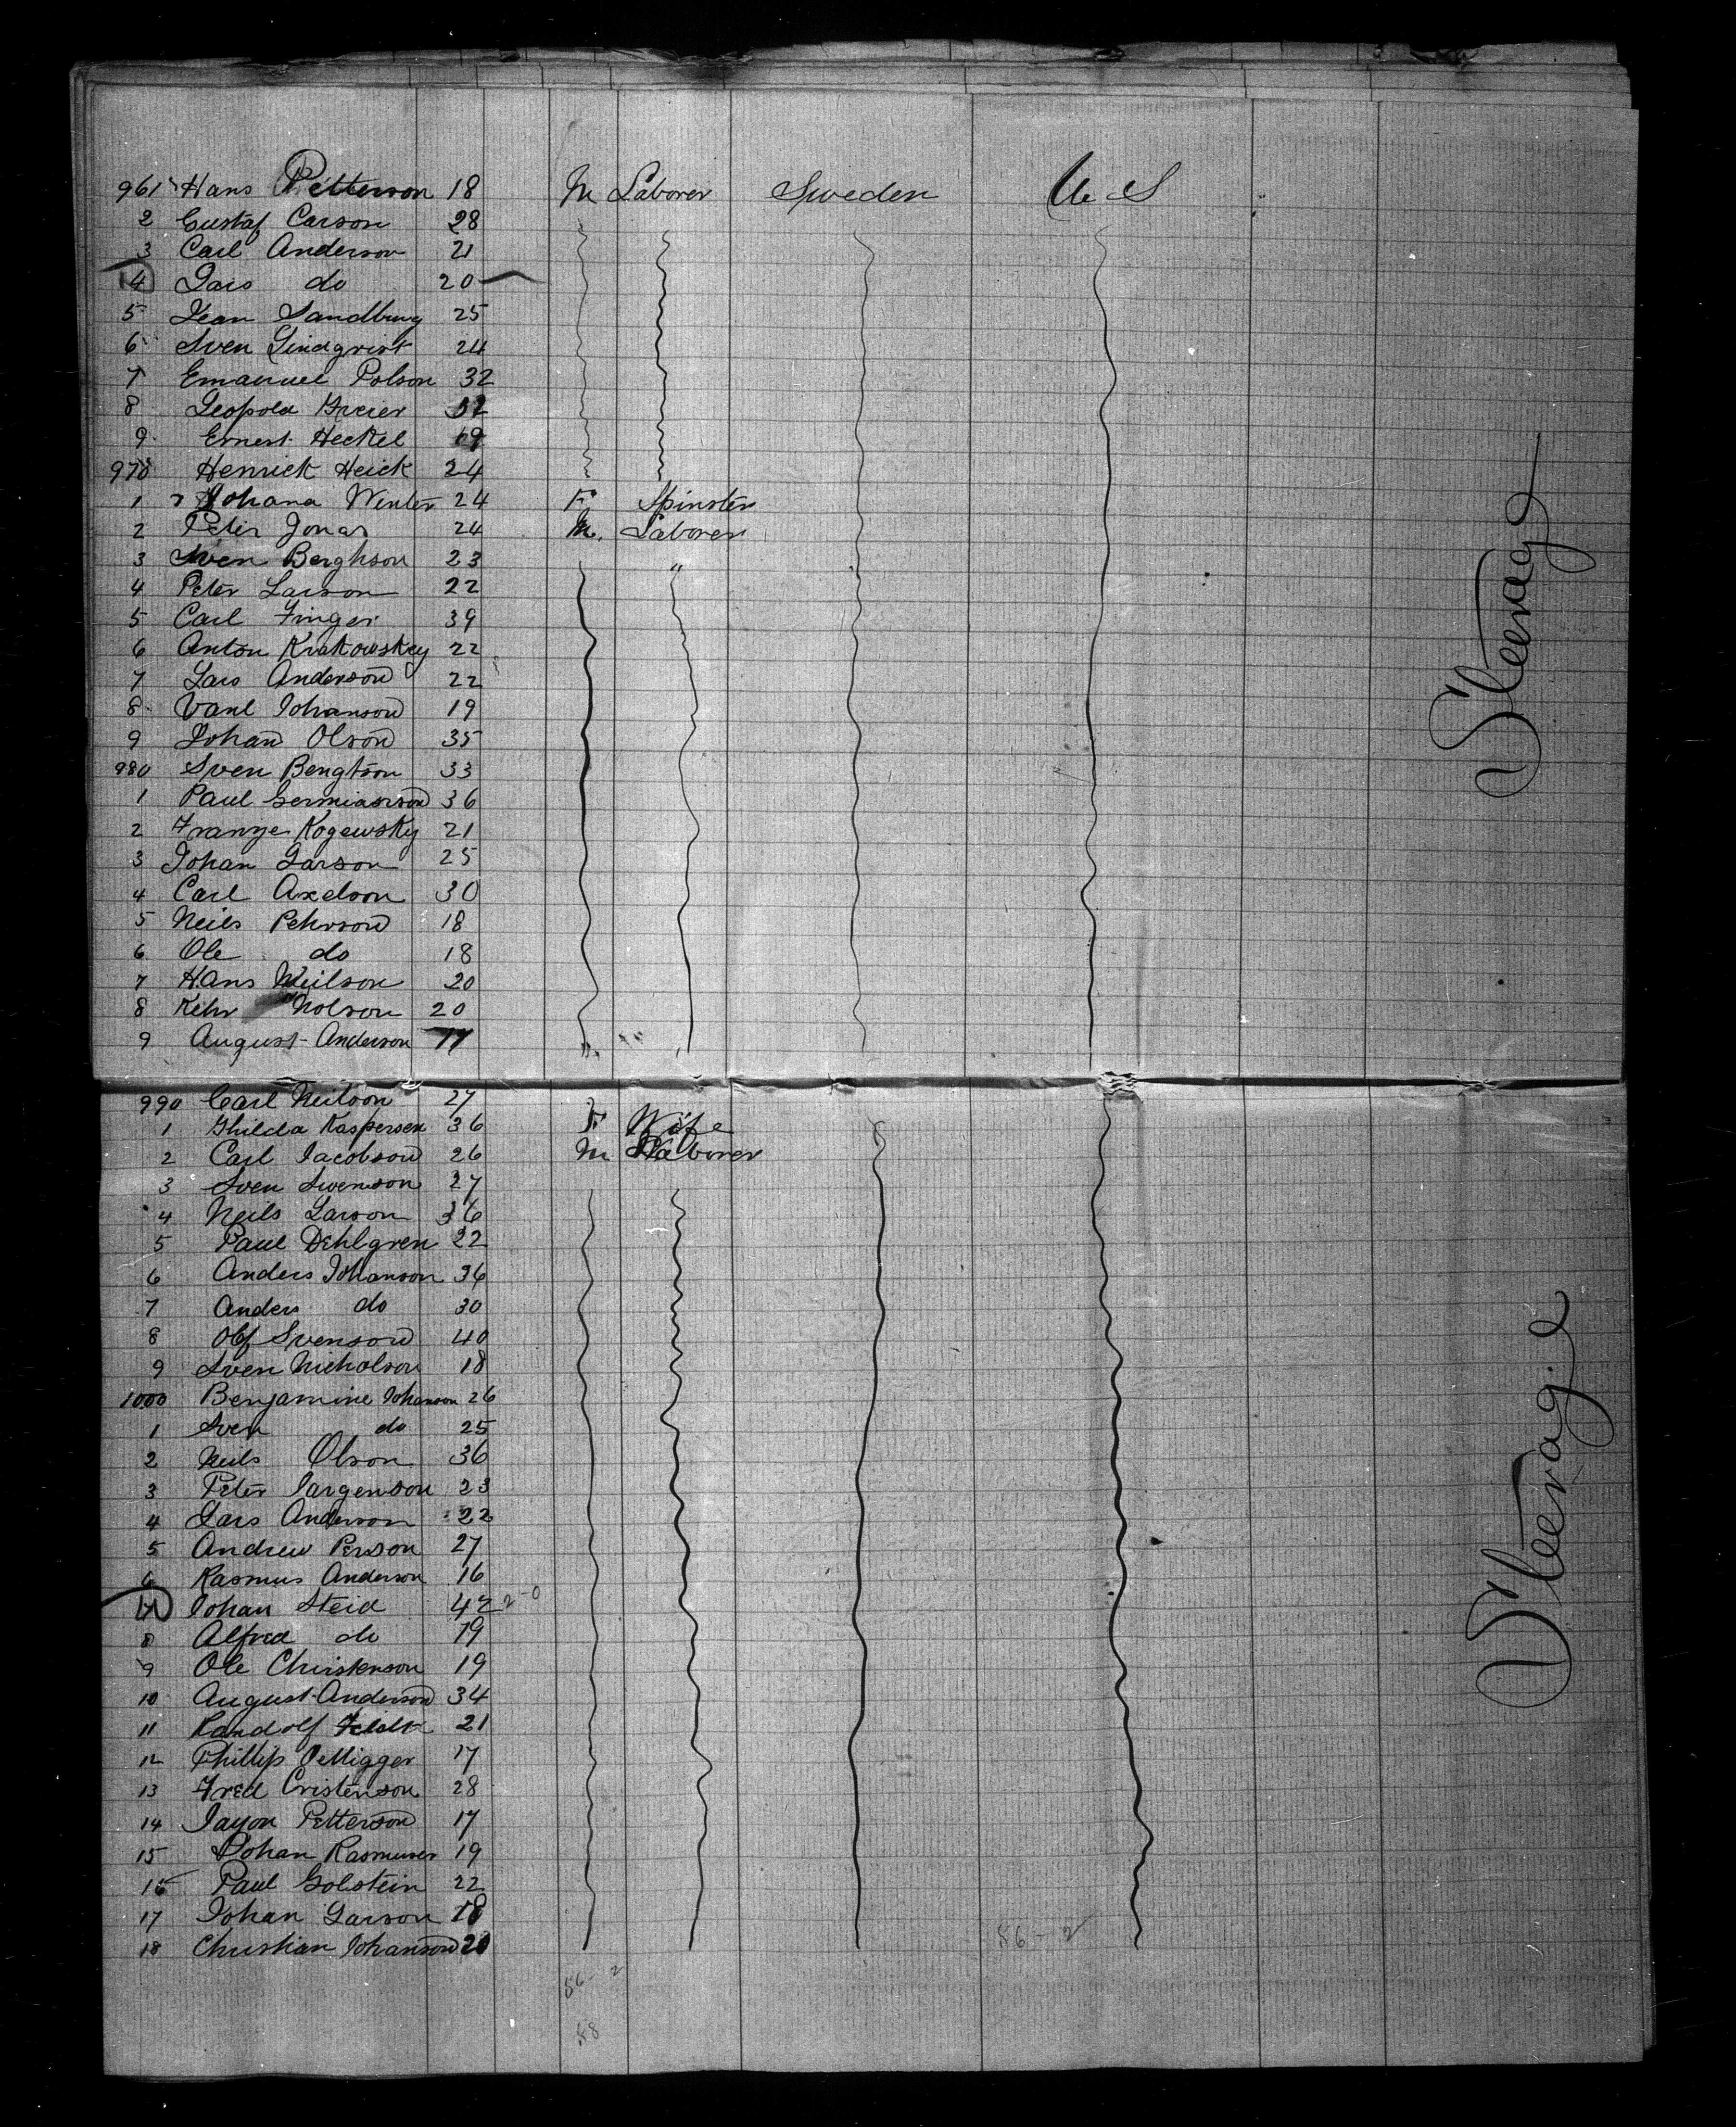 961 Hans Petterson 18 M Laborer Sweden U S
2 Gustaf Carson 28
3 Carl Anderson 21
4 Lars do 20
5 Jean Sandburg 25
6 Sven Lindqvist 24
7 Emanuel Polson 32
8 Leopold Greier 32
9 Ernest Heckel 19
970 Henrick Heick 24
1 Johana Winter 24 F Spinster
2 Peter Jonas 24 M. Laborer
3 Sven Berghson 23 "
4 Peter Larson 22
5 Carl Finger 39
6 Anton Krakowskey 22
7 Lars Anderson 22
8 Johanson 19
9 Johan Olson 35
980 Sven Bengtson 33
1 Paul 36
2 Franze Kogewsky 21
3 Johan Larson 25
4 Carl Axelson 30
5 Neils Pehrson 18
6 Ole do 18
7 Hans Neilson 20
8 Kehr Nolson 20
9 August Anderson
Steerage
990 Carl Neilson 27
1 Ghilda Kaspersen 36 F Wife
2 Carl Jacobson 26 M Laborer
3 Sven Swenson 27
4 Neils Larson 36
5 Paul Dehlgren 22
6 Anders Johanson 36
7 Anders do 30
8 Olf Svenson 40
9 Sven Nicholson 18
1000 Benjamine Johanson 26
1 Sven do 25
2 Neils Olson 36
3 Peter Jargenson 23
4 Lars Anderson 22
5 Andrew Person 27
6 Rasmus Anderson 16
7 Johan Steid 42
8 Alfred do 19
9 Ole Christenson 19
10 August Anderson 34
11 Randolf 21
12 Phillip Oettigger 17
13 Fred Cristenson 28
14 Jayon Petterson 17
15 Johan Rasmusen 19
16 Paul Golstein 22
17 Johan Larson 18
18 Christian Johanson 20
Steerage
86-2
86-2
88